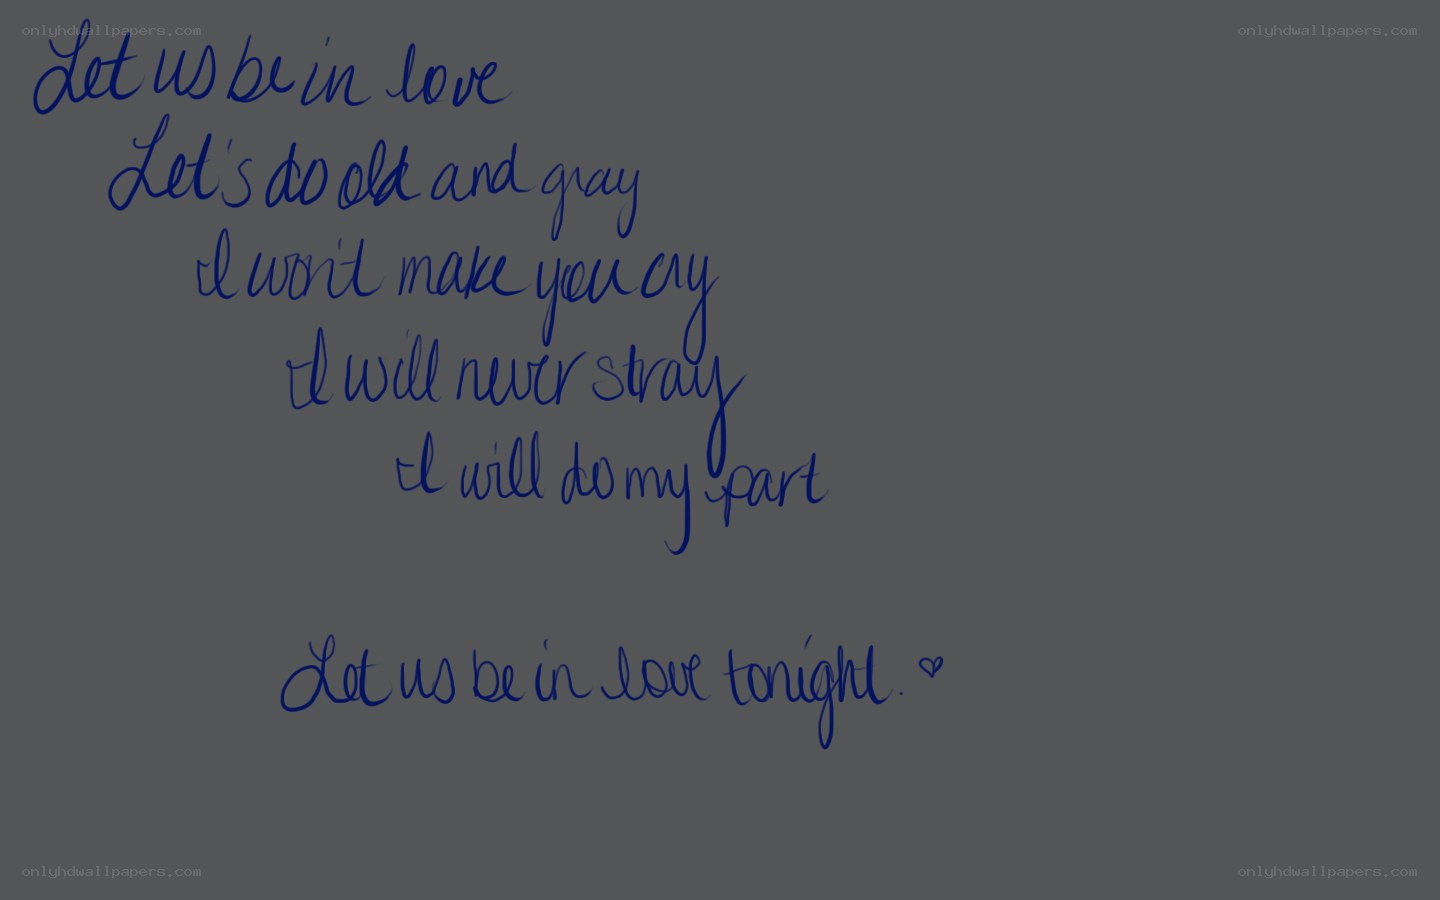 onlyhdwallpapers.com onlyhdwallpapers.com
Let us be in love
Let's do old and gray
I won't make you cry
I will never stray
I will do my part
Let us be in love tonight. ♥
onlyhdwallpapers.com onlyhdwallpapers.com